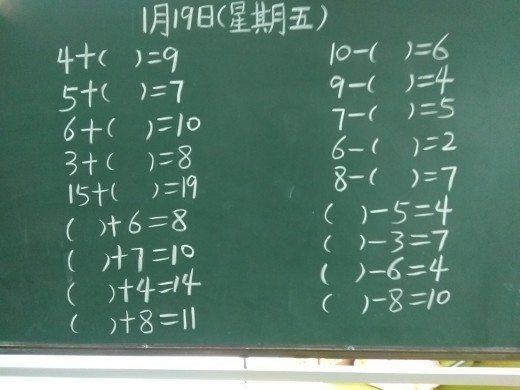 1月19日(星期五)
4+( )=9
5+( )=7
6+( )=10
3+( )=8
15+( )=19
( )+6=8
( )+7=10
( )+4=14
( )+8=11
10-( )=6
9-( )=4
7-( )=5
6-( )=2
8-( )=7
( )-5=4
( )-3=7
( )-6=4
( )-8=10